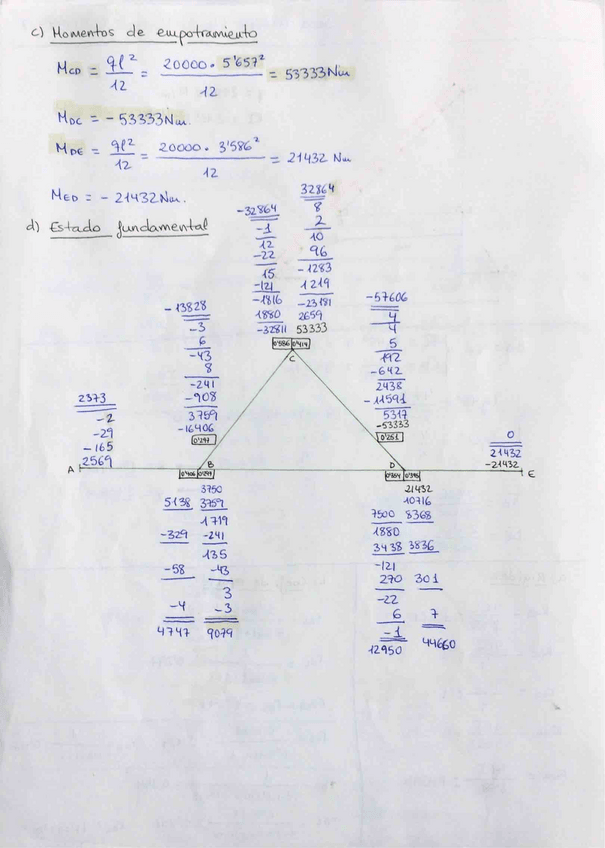 c) Momentos de empotramiento
M_CD = ql²/12 = 20000 · 5'657²/12 = 53333 Nm
M_DC = - 53333 Nm.
M_DE = ql²/12 = 20000 · 3'586²/12 = 21432 Nm
M_ED = - 21432 Nm.
d) Estado fundamental
-32864
-1
12
-22
15
-121
-1816
1880
-32811
32864
8
2
10
96
-1283
1219
-23181
2659
53333
0'586 0'414
C
-13828
-3
6
-43
8
-241
-908
3759
-16406
0'297
-57606
4
4
5
192
-642
2438
-11591
5317
-53333
0'251
2373
-2
-29
-165
2569
0
21432
-21432
A
B
D
E
0'406 0'297
0'354 0'395
3750
5138 3759
1719
-329 -241
135
-58 -43
3
-4 -3
4747 9079
21432
10716
7500 8368
1880
3438 3836
-121
270 301
-22
6 7
-1
12950 44660